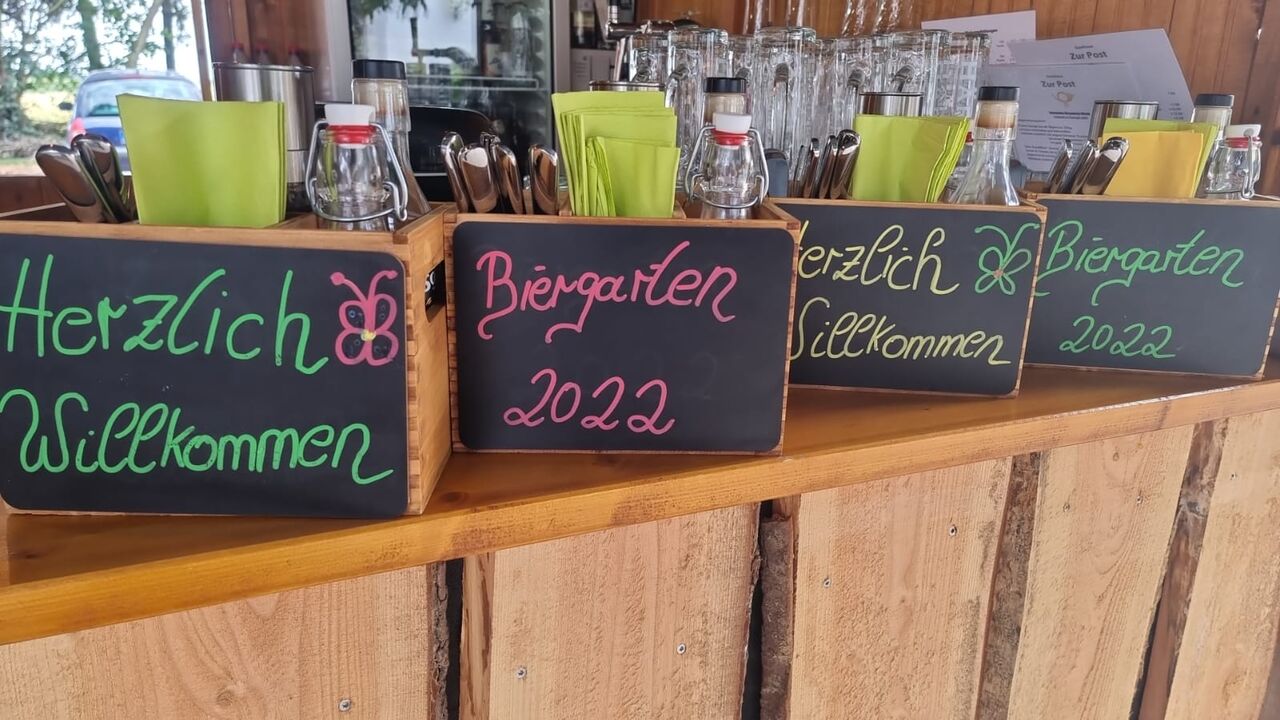 Herzlich
Willkommen
Biergarten
2022
erzlich
Willkommen
Biergarten
2022
Zur Post
Zur Post